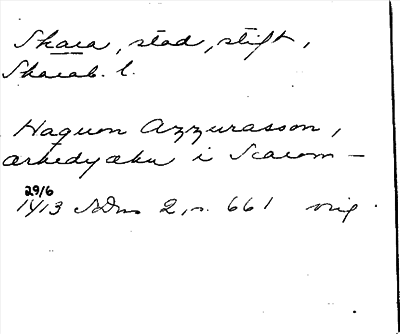 Skara, stad, stift,
Skarab. l.
Haquon Azzurasson,
ærkedyækn i Scarom —
29/6
1413 SDns 2, n. 661 orig.